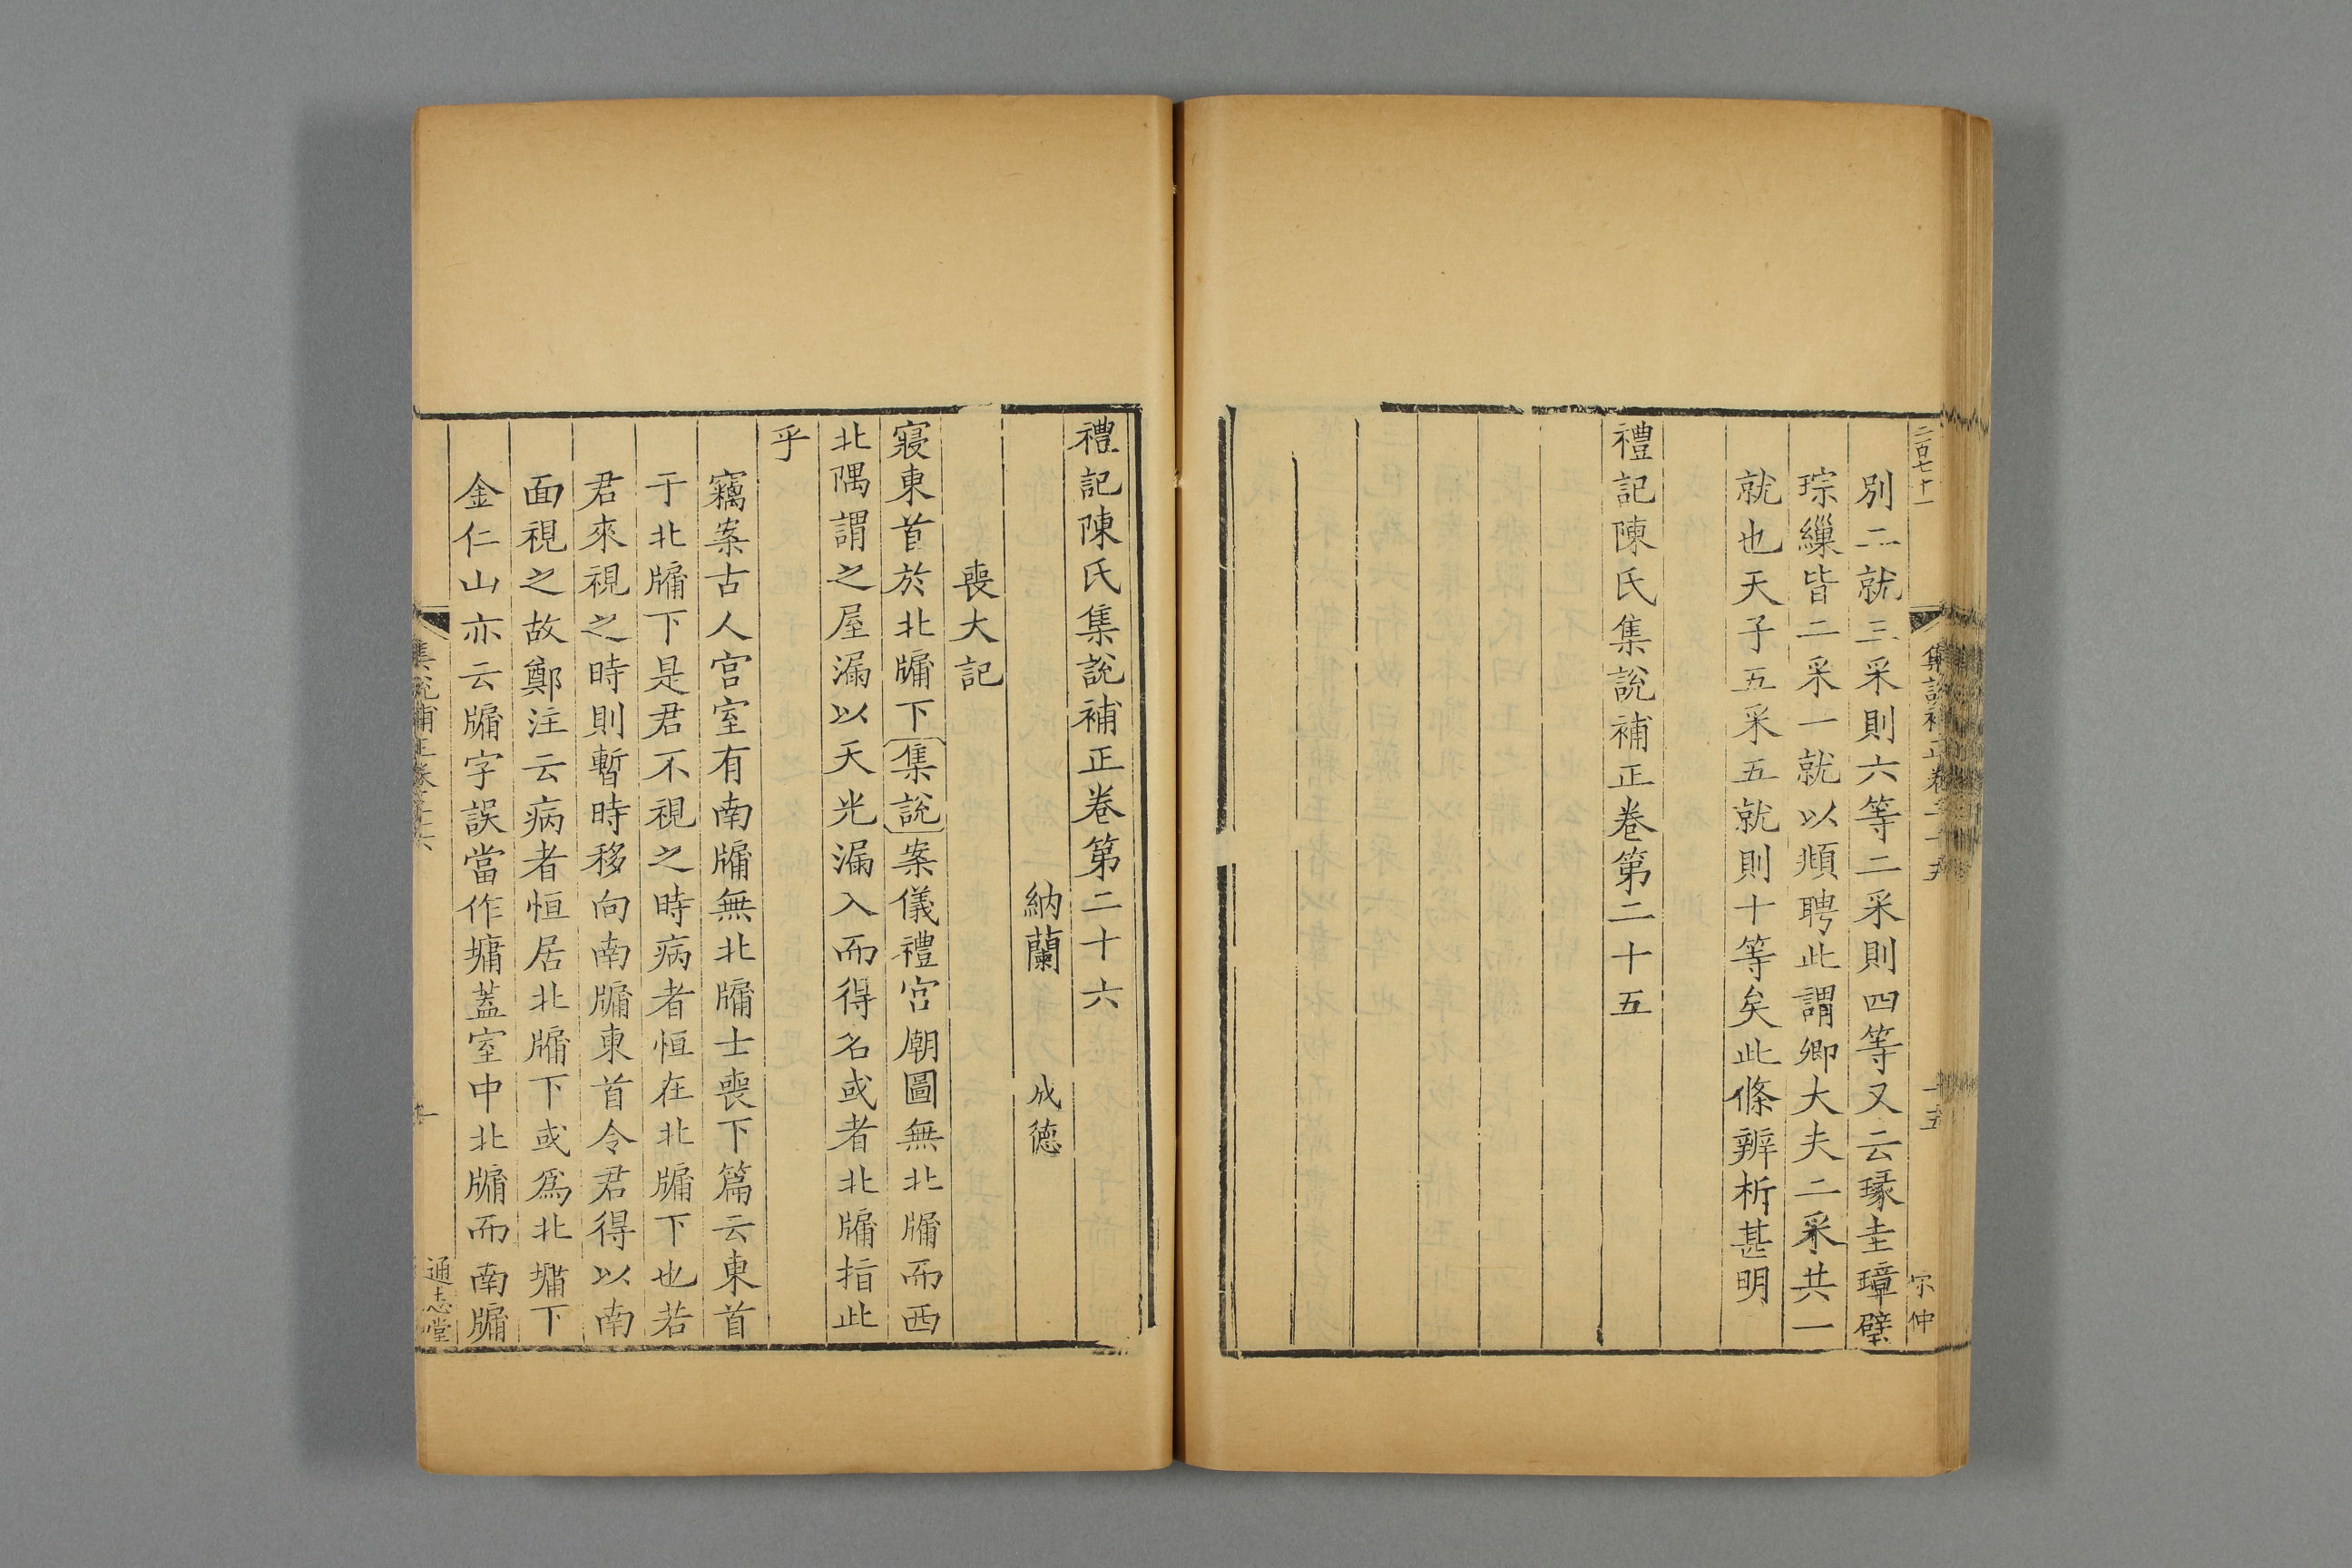 二百七十一
集說補正卷二十五
十五
宗仲
別二就三采則六等二采則四等又云瑑圭璋璧
琮繅皆二采一就以頫聘此謂卿大夫二采共一
就也天子五采五就則十等矣此條辨析甚明
禮記陳氏集說補正卷第二十五
禮記陳氏集說補正卷第二十六
納蘭 成德
喪大記
寢東首於北牖下集說案儀禮宮廟圖無北牖而西
北隅謂之屋漏以天光漏入而得名或者北牖指此
乎
竊案古人宮室有南牖無北牖士喪下篇云東首
于北牖下是君不視之時病者恒在北牖下也若
君來視之時則暫時移向南牖東首令君得以南
面視之故鄭注云病者恒居北牖下或爲北墉下
金仁山亦云牖字誤當作墉蓋室中北牖而南牖
集說補正卷二十六
一
通志堂